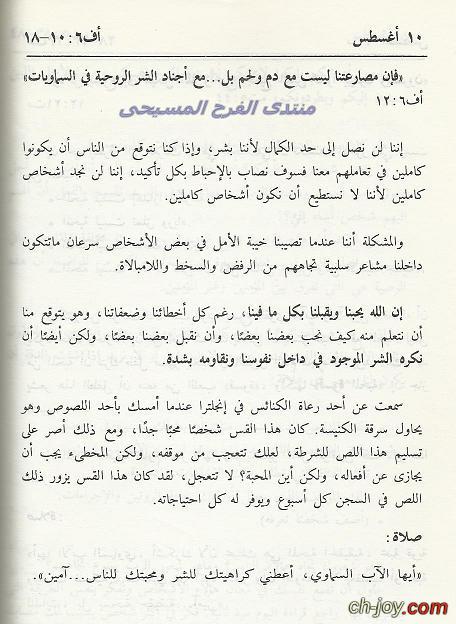 ١٠ أغسطس أف٦: ١٠-١٨
«فإن مصارعتنا ليست مع دم ولحم بل...مع أجناد الشر الروحية في السماويات»
أف٦: ١٢
منتدى الفرح المسيحى
إننا لن نصل إلى حد الكمال لأننا بشر، وإذا كنا نتوقع من الناس أن يكونوا
كاملين في تعاملهم معنا فسوف نصاب بالإحباط بكل تأكيد، إننا لن نجد أشخاص
كاملين لأننا لا نستطيع أن نكون أشخاص كاملين.
والمشكلة أننا عندما تصيبنا خيبة الأمل في بعض الأشخاص سرعان ماتتكون
داخلنا مشاعر سلبية تجاههم من الرفض والسخط واللامبالاة.
إن الله يحبنا ويقبلنا بكل ما فينا، رغم كل أخطائنا وضعفاتنا، وهو يتوقع منا
أن نتعلم منه كيف نحب بعضنا بعضًا، وأن نقبل بعضنا بعضًا، ولكن أيضًا أن
نكره الشر الموجود في داخل نفوسنا ونقاومه بشدة.
سمعت عن أحد رعاة الكنائس في إنجلترا عندما أمسك بأحد اللصوص وهو
يحاول سرقة الكنيسة. كان هذا القس شخصًا محبًا جدًا، ومع ذلك أصر على
تسليم هذا اللص للشرطة، لعلك تتعجب من موقفه، ولكن المخطىء يجب أن
يجازى عن أفعاله، ولكن أين المحبة؟ لا تتعجل، لقد كان هذا القس يزور ذلك
اللص في السجن كل أسبوع ويوفر له كل احتياجاته.
صلاة:
«أيها الآب السماوي، أعطني كراهيتك للشر ومحبتك للناس...آمين».
ch-joy.com